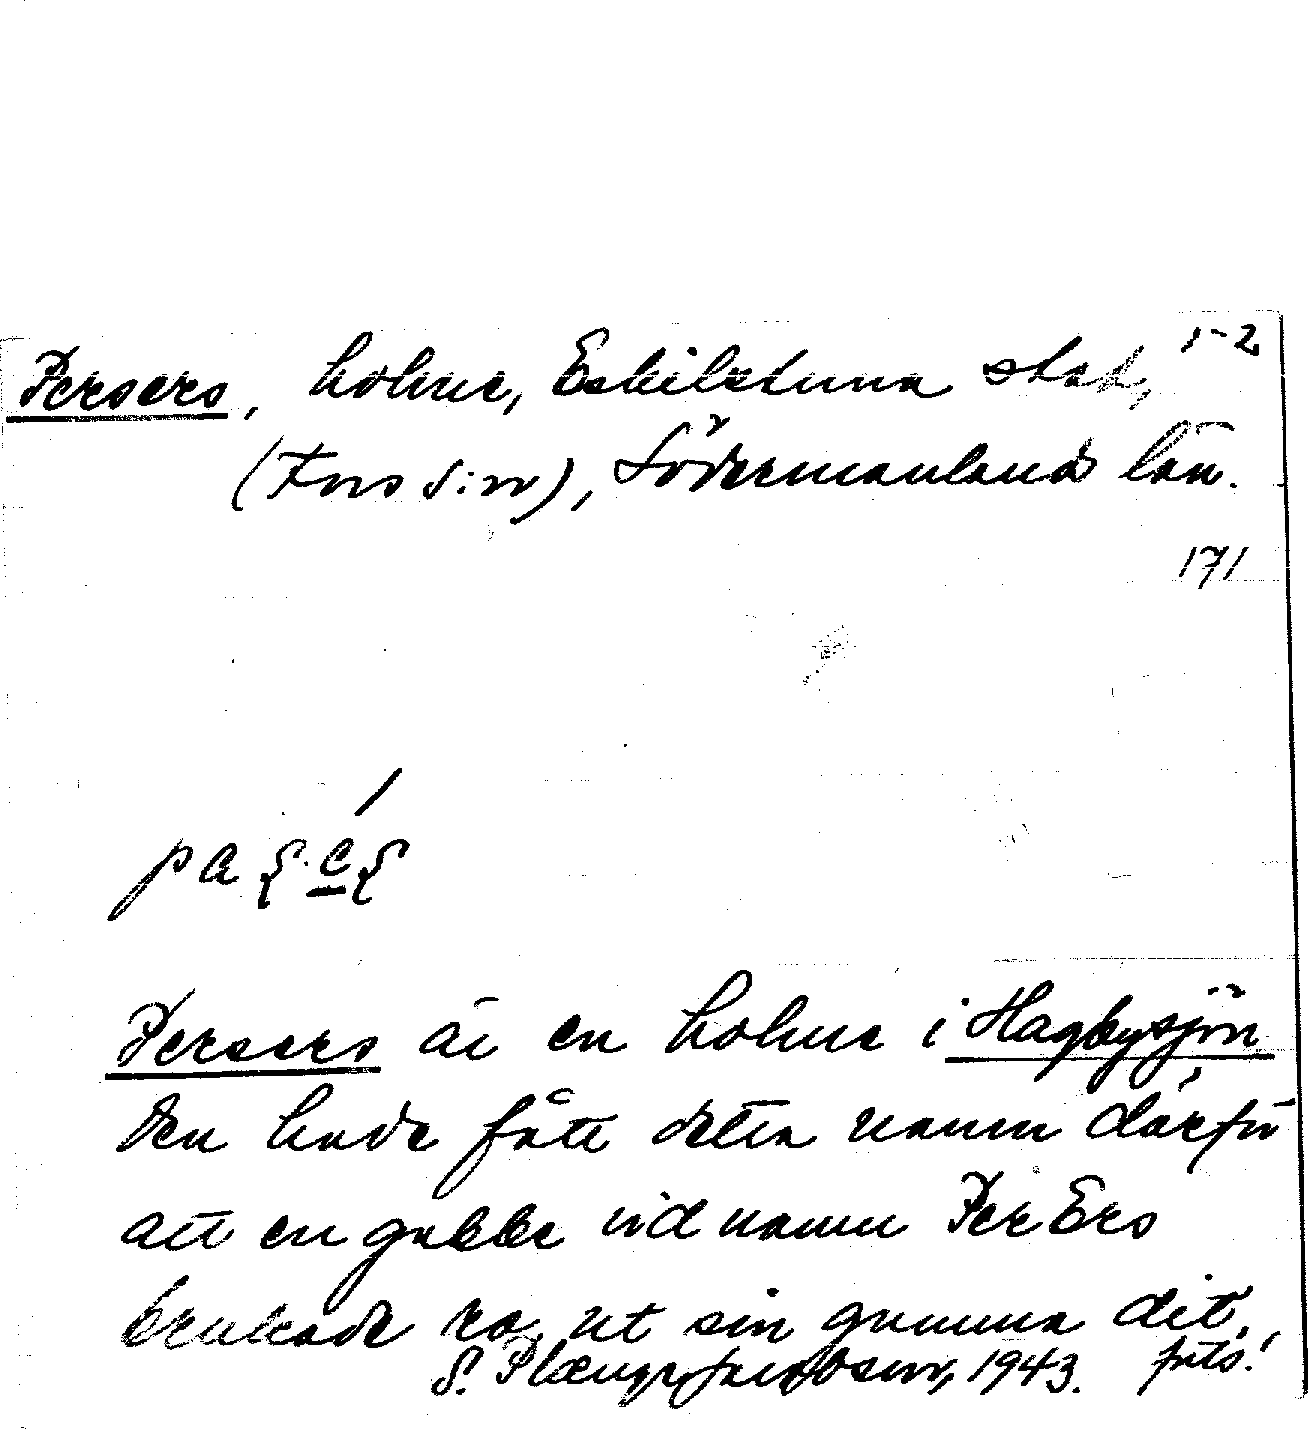 Persers, holme, Eskilstuna stad, 1-2
(Fors s:n), Södermanland län.
171
Persers är en holme i Hagbysjön
Den hade fått detta namn därför
att en gubbe vid namn Per Ers
brukade ro ut sin gumma dit.
S. 1943. forts.!